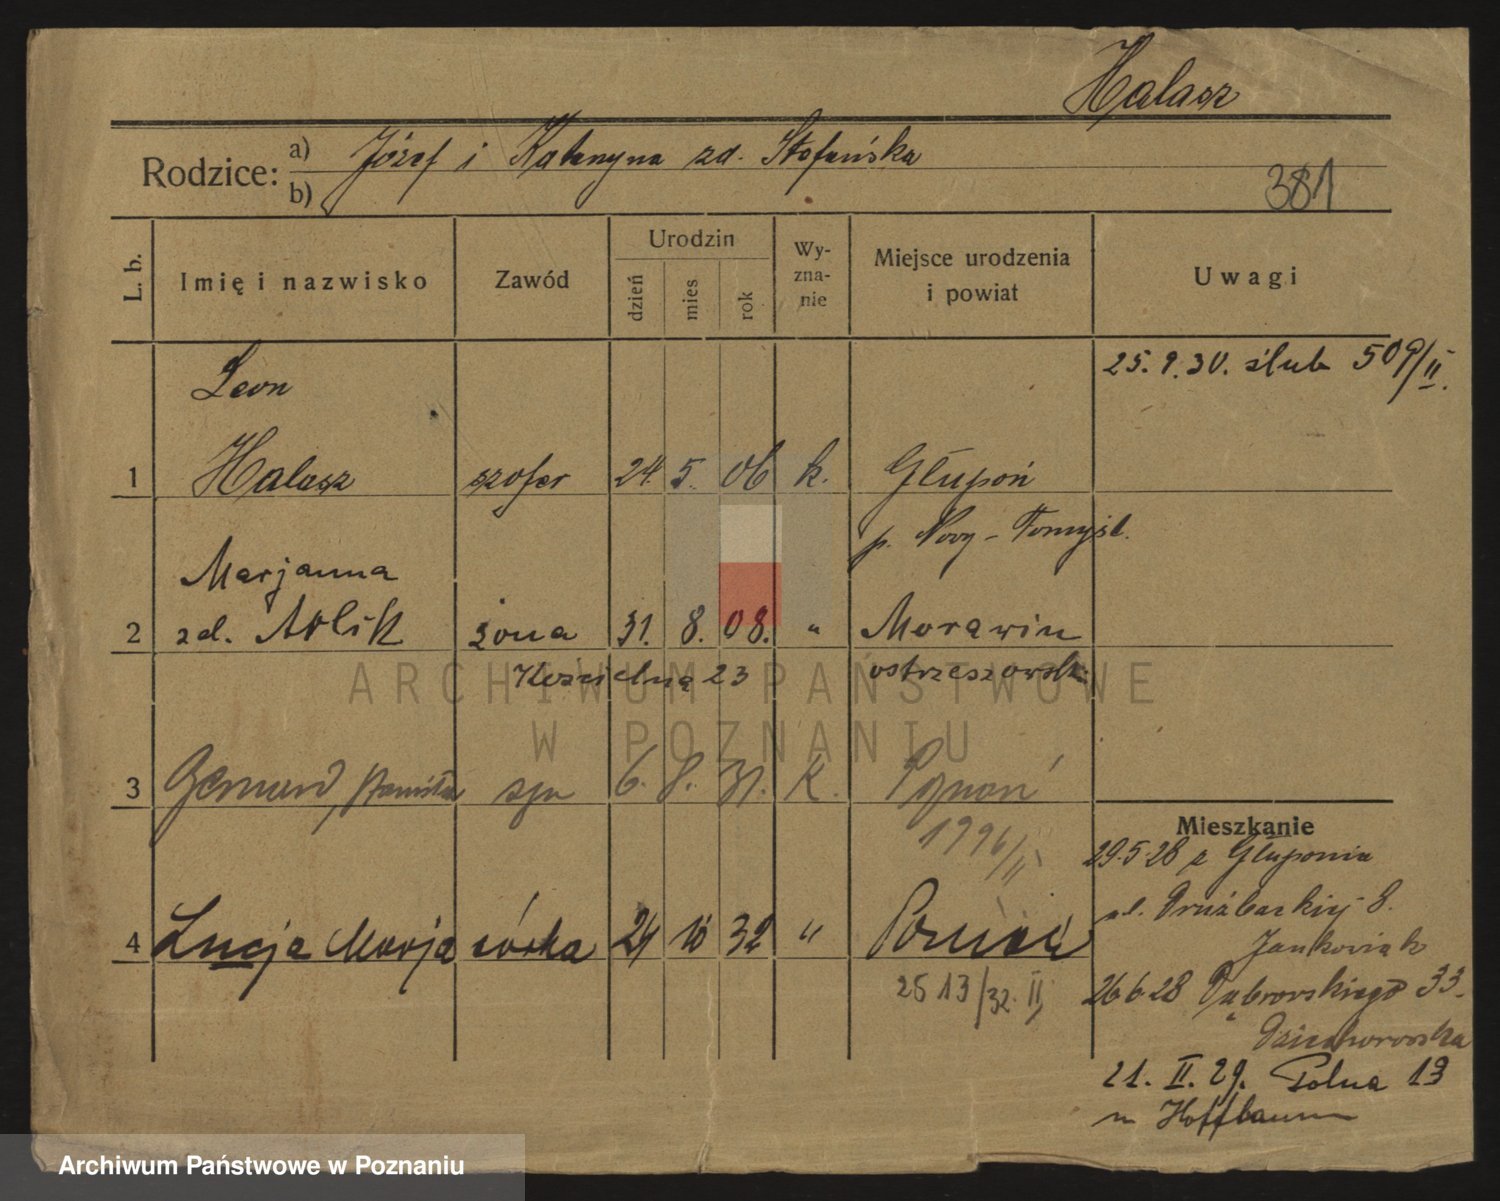 Halasz
Rodzice:
a) Józef i Katarzyna zd. Stefańska
b)
381
L. b.
Imię i nazwisko
Zawód
Urodzin
dzień
mies
rok
Wy-
zna-
nie
Miejsce urodzenia
i powiat
Uwagi
25. 9. 30. ślub 509/II.
Leon
1 Halasz szofer 24. 5. 06 k. Głupoń
p. Nowy-Tomyśl.
Marjanna
2 zd. Adlik żona 31. 8. 08. " Morawin
Kościelna 23 ostrzeszowski
3 Gerard, Stanisław syn 6. 8. 31. K. Poznań
1996/II
4 Lucja Marja córka 24 10 32 " Poznań
2513/32. II
Mieszkanie
29.5.28 z Głuponia
ul. Drużbackiej 8.
Jankowiak
26.6.28 Dąbrowskiego 33
21. II. 29. Polna 13
u Hoffbaum
ARCHIWUM PAŃSTWOWE
W POZNANIU
Archiwum Państwowe w Poznaniu